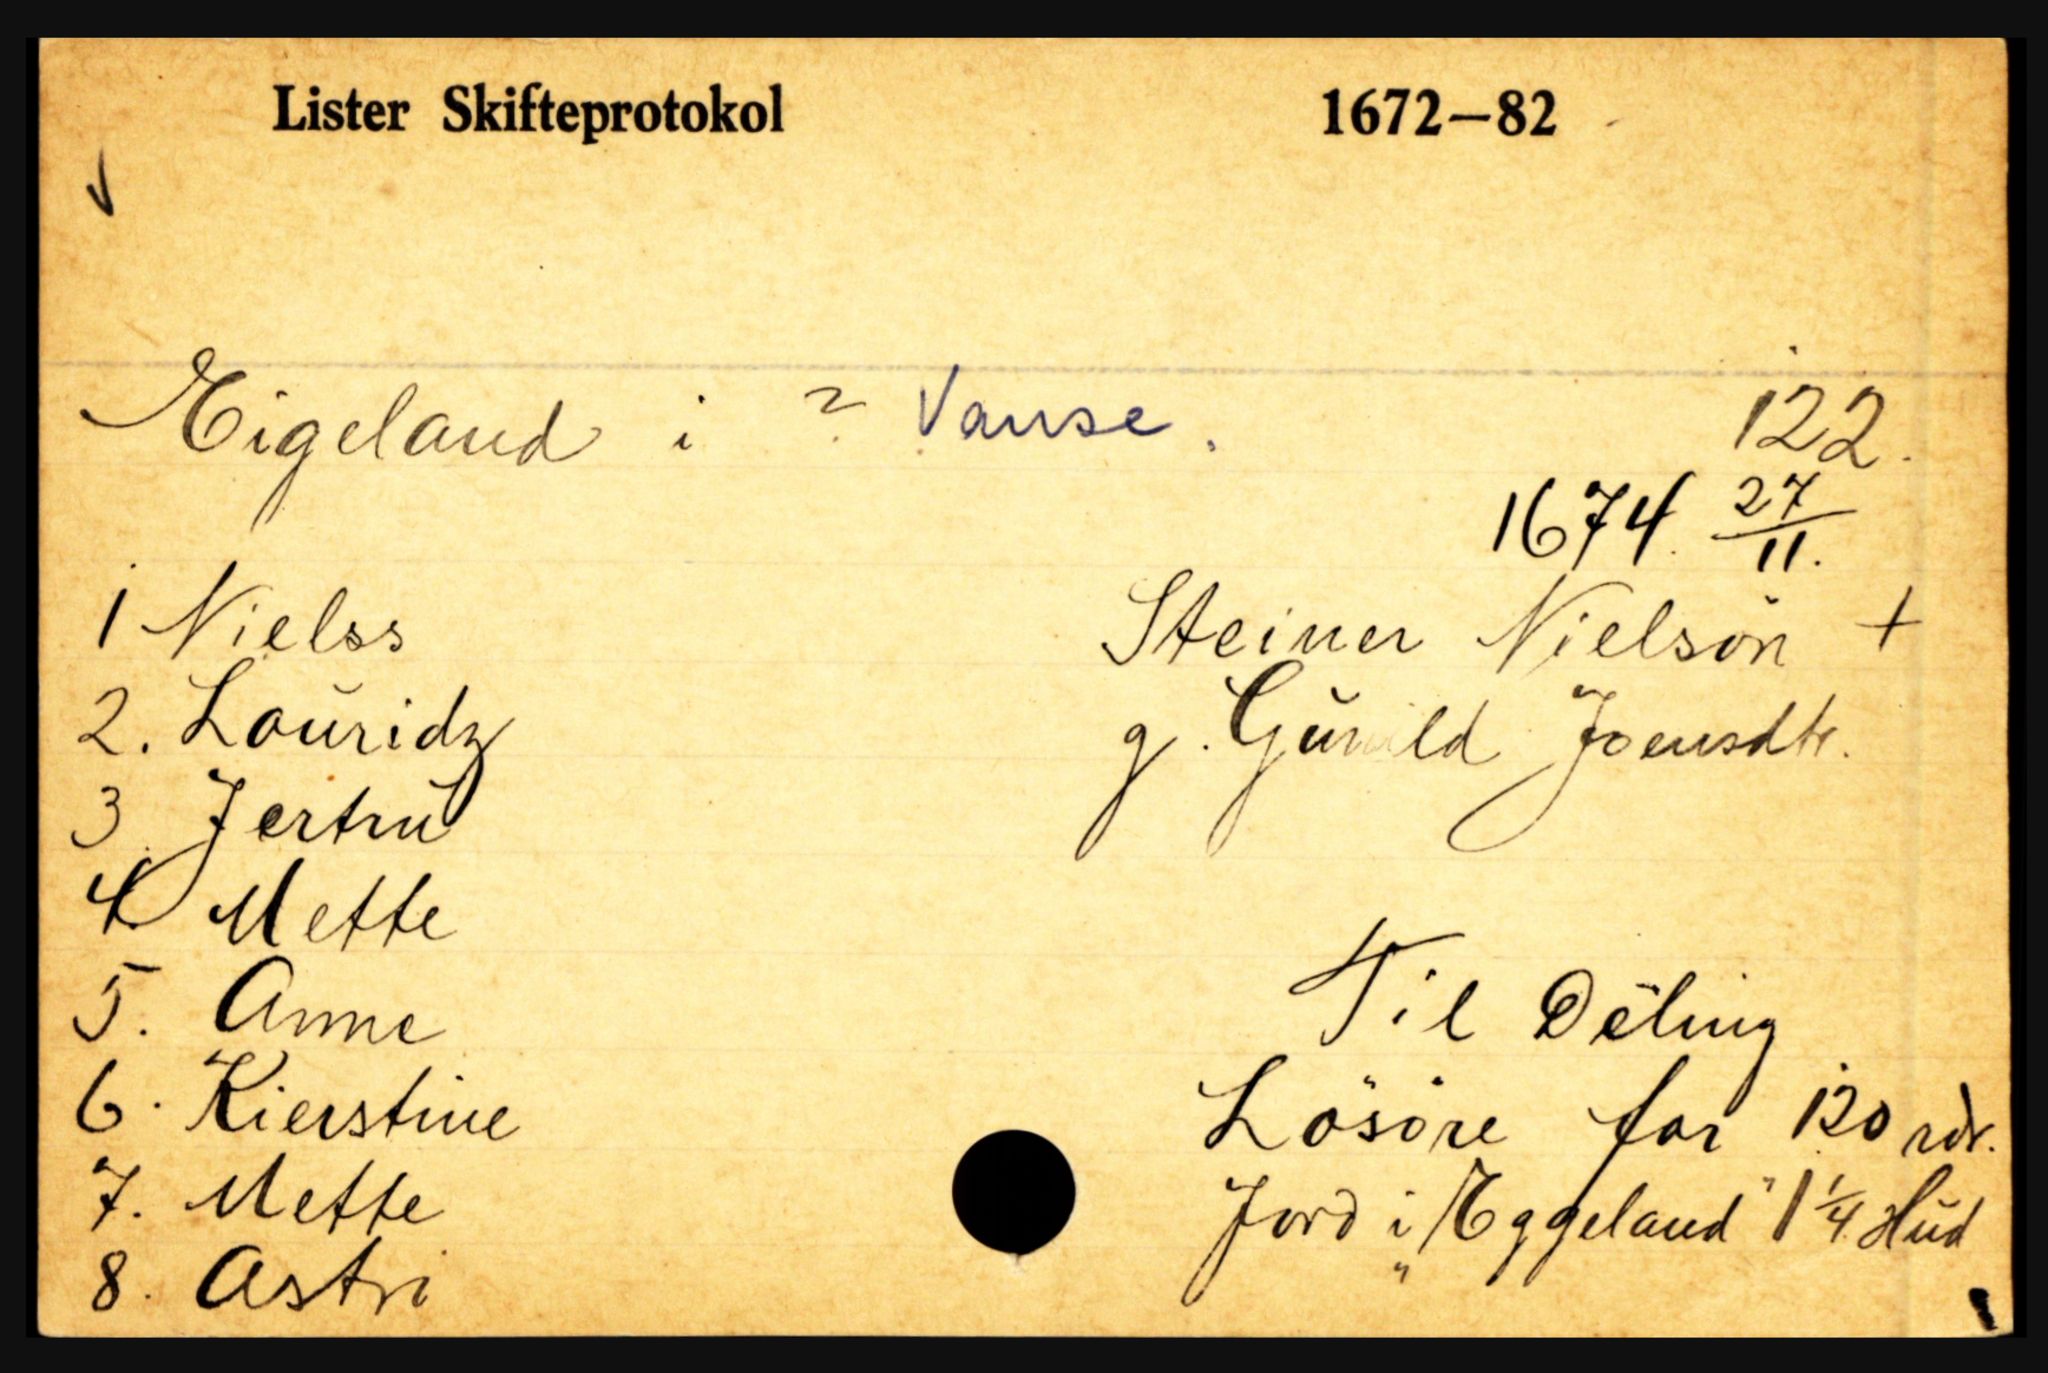 Lister Skifteprotokol 1672—82
Eigeland i ? Vanse. 122.
1674. 27/11.
1 Nielss
Steiner Nielsön +
2. Louridz
g. Gunild Joensdtr.
3. Jertru
4. Mette
5. Anne
Til Deling
6. Kierstine
Lösöre for 120 rdr.
7. Mette
Jord i "Eggeland" 1 1/4 Hud
8. Astri